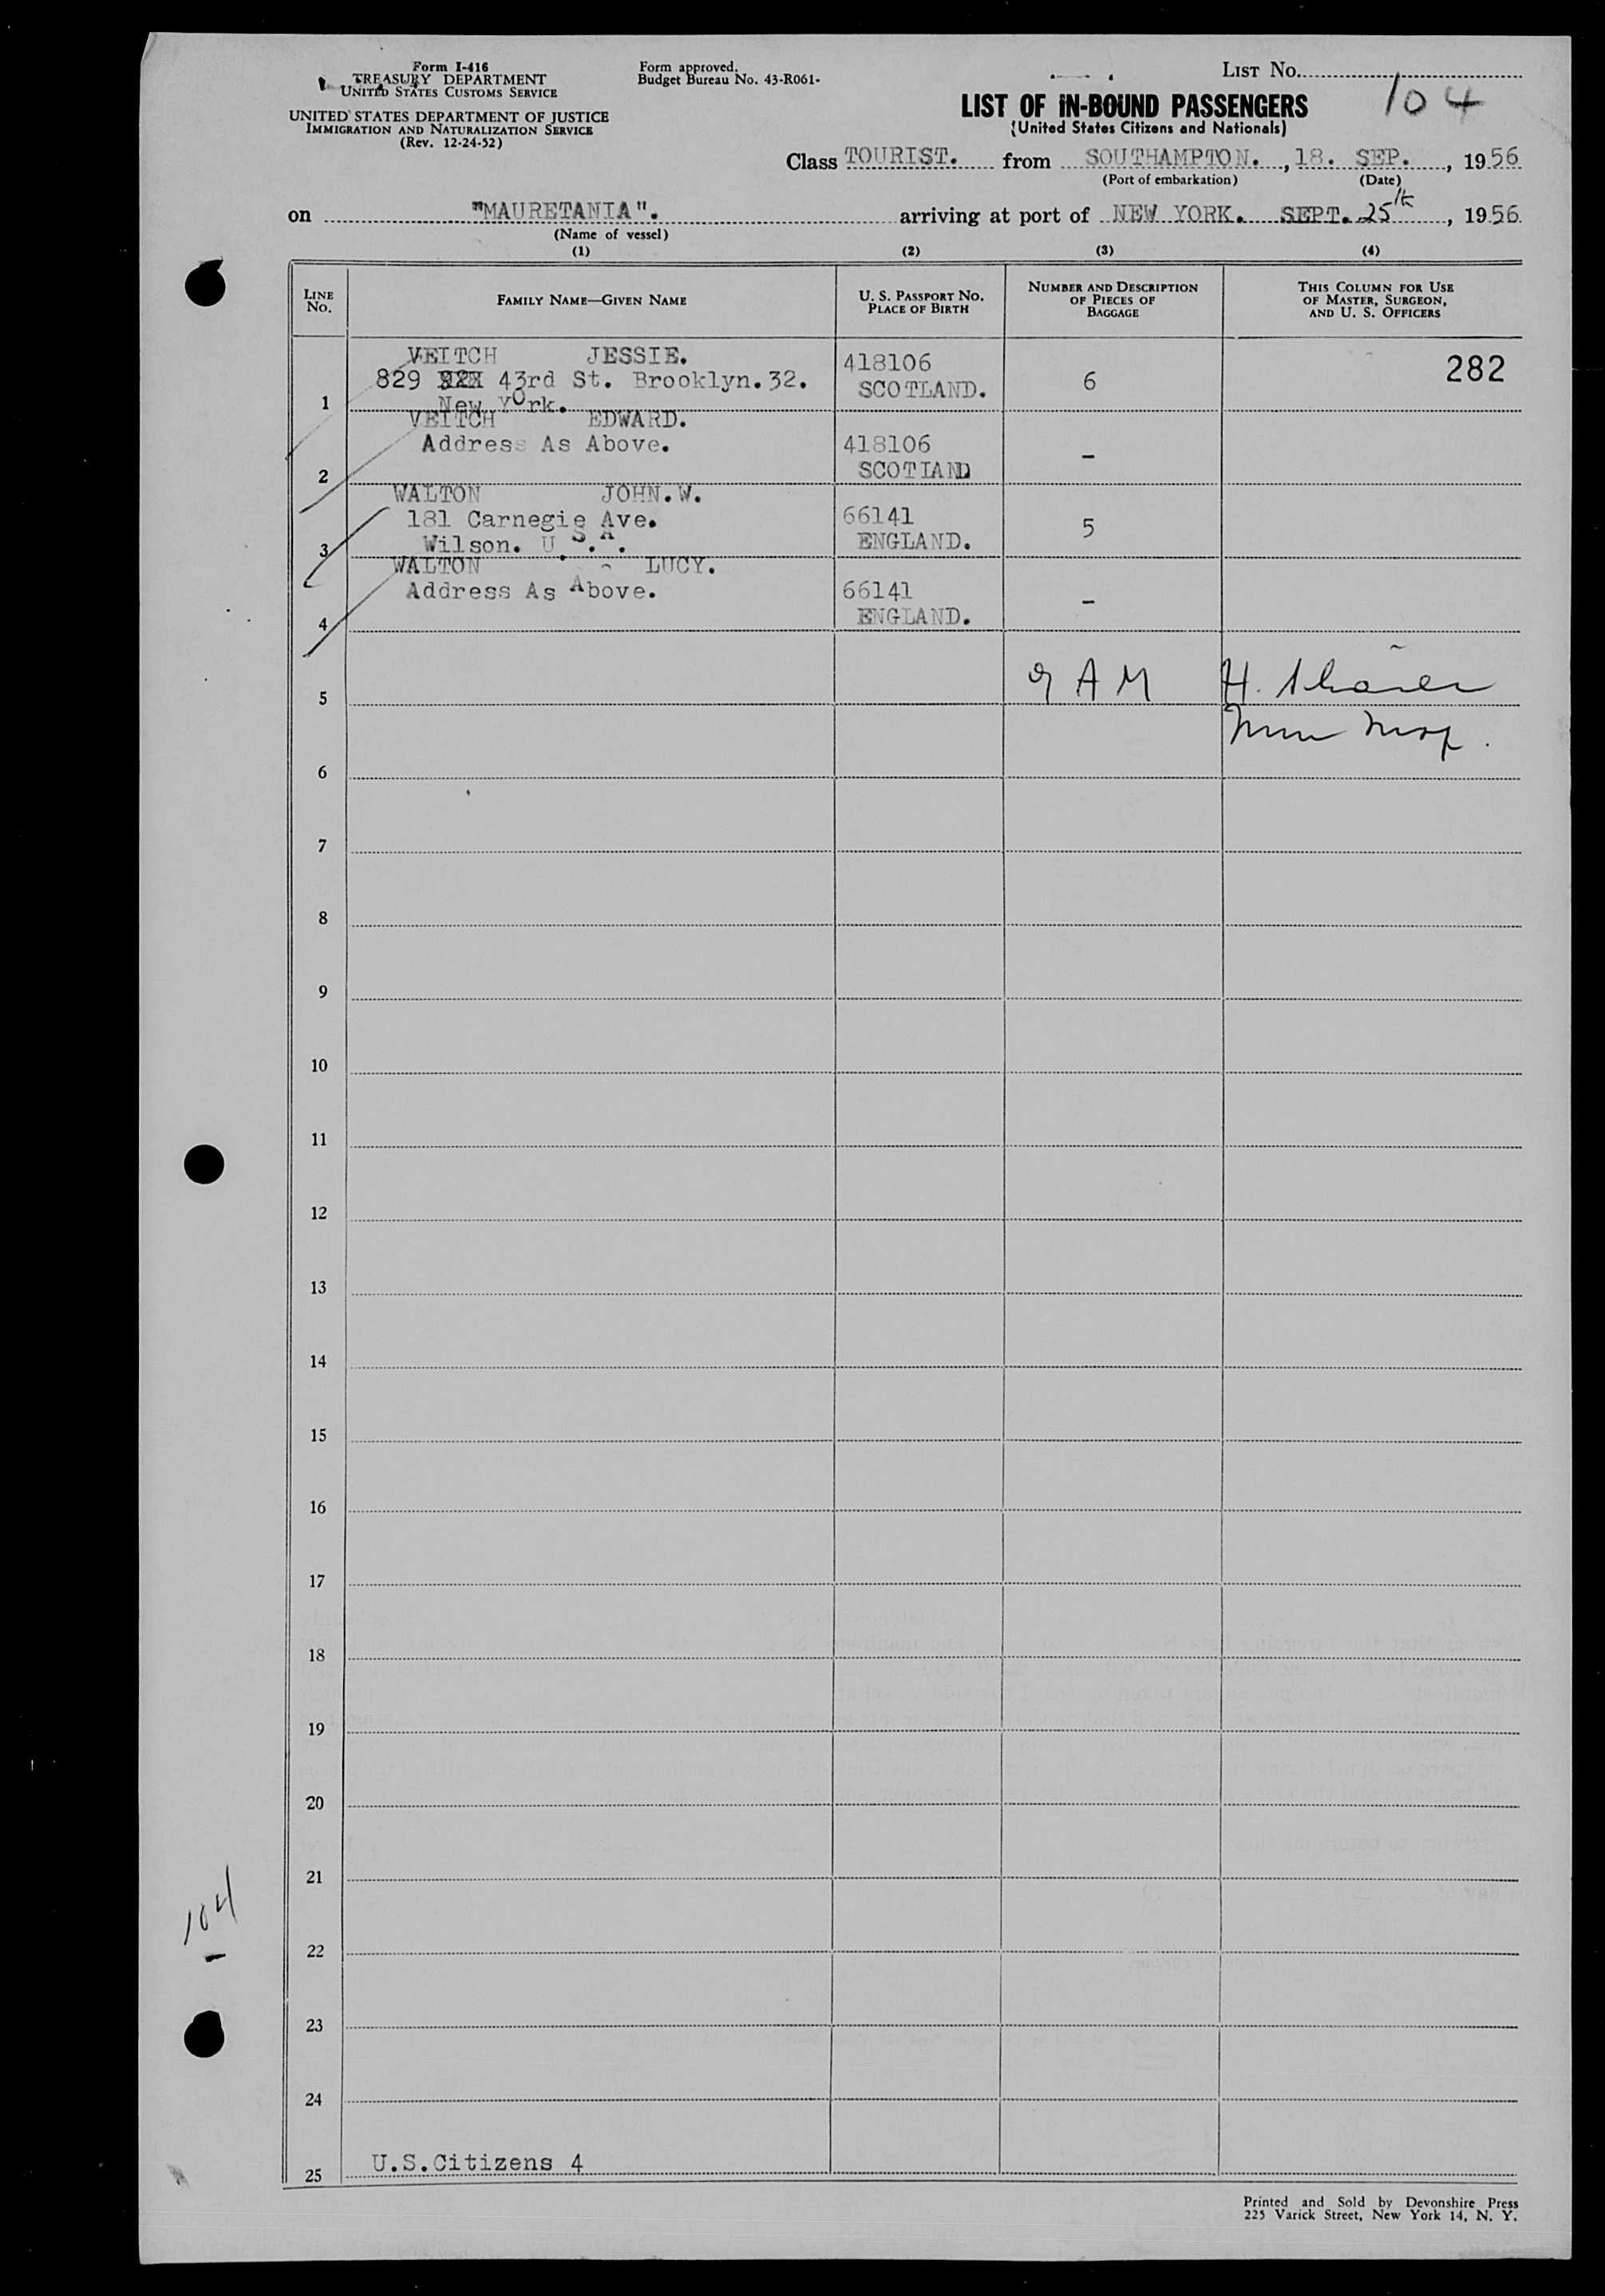 Form I-416
TREASURY DEPARTMENT
UNITED STATES CUSTOMS SERVICE
UNITED STATES DEPARTMENT OF JUSTICE
IMMIGRATION AND NATURALIZATION SERVICE
(Rev. 12-24-52)
Form approved.
Budget Bureau No. 43-R061-
LIST NO.
104
LIST OF IN-BOUND PASSENGERS
(United States Citizens and Nationals)
Class TOURIST. from SOUTHAMPTON., 18. SEP., 1956
(Port of embarkation) (Date)
on "MAURETANIA". arriving at port of NEW YORK. SEPT. 25th, 1956
(Name of vessel)
(1) (2) (3) (4)
LINE NO.
FAMILY NAME—GIVEN NAME
U. S. PASSPORT NO.
PLACE OF BIRTH
NUMBER AND DESCRIPTION
OF PIECES OF
BAGGAGE
THIS COLUMN FOR USE
OF MASTER, SURGEON,
AND U. S. OFFICERS
VEITCH JESSIE. 418106 282
829 43rd St. Brooklyn.32. SCOTLAND. 6
1 New York.
VEITCH EDWARD.
Address As Above. 418106
2 SCOTLAND –
WALTON JOHN.W.
181 Carnegie Ave. 66141 5
3 Wilson. U.S.A. ENGLAND.
WALTON LUCY.
Address As Above. 66141
4 ENGLAND. –
5 A M H.
6
7
8
9
10
11
12
13
14
15
16
17
18
19
20
21
104
22
23
24
25 U.S.Citizens 4
Printed and Sold by Devonshire Press
225 Varick Street, New York 14, N. Y.